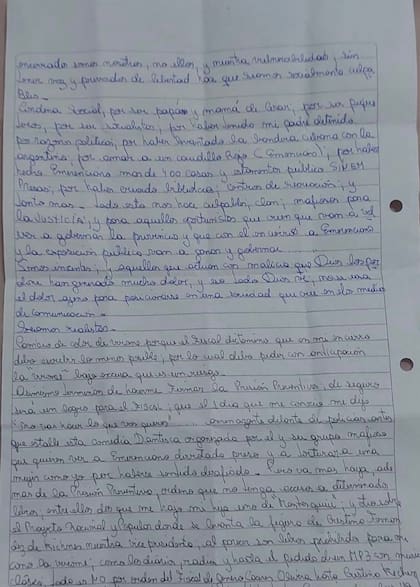 encerrados somos nosotros, no ellos, y nuestra vulnerabilidad, sin
tener voz y privados de libertad hace que seamos socialmente culpa
bles.-
Condena social, por ser papá y mamá de Cesar, por ser piquе
teros, por ser socialistas, por haber tenido mi padre detenido
por razones politicas, por haber levantado la bandera cubana con la
argentina, por amar a un caudillo Rojo (Emerenciano), por haber
hecho Emerenciano más de 400 casas y alimentos publica SINEM
Presas, por haber creado biblioteca, centros de recreación, y
tanto mas - todo esto nos hace culpables, clan, mafiosos para
la JUSTICIA, y para aquellos oportunistas que creen que van a vol
ver a gobernar la provincia y que con el encierro a Emerenciano
y la exposición publica van a ganar y gobernar
, aquellos que actuan con malicia que Dios los per
done han generado mucho dolor, y su lado Dios ve, nose usa
el dolor ajeno para posicionarse en una sociedad que cree en los medios
de comunicación.-
Seamos realistas.-
Cambio de color de birome porque el Fiscal dictaminó que en mi encierro
debo escribir lo menos posible, por lo cual debo pedir con anticipación
la "birome" bajo excusa que es un riesgo.-
Firmar la Prisión Preventiva, de seguro
sera un logro para el Fiscal, que el 1 dia que me conocio me dijo
"vas a hacer lo que vos queres" amenazante delante de policias, antes
que estalle esta comedia Dantesca organizada por el y su grupo mafioso
que quieren ver a Emerenciano derrotado preso y a torturar a una
mujer como yo por haberse sentido desafiado.- Pero va mas haya, ade
mas de la Prisión Preventiva, ordeno que no tenga acceso a determinado
libros, entre ellos dos que me hajo mi hijo uno de "Mariategui" y otro sobre
el Proyecto Nacional y Popular donde se levanta la figura de Cristina Fernan
dez de Kirchner nuestra vice presidenta, al parecer son libros prohibidos para mi
como la birome, como los diarios, radios y hasta el pedido de un MP3 con musica
, todo es NO por orden del Fiscal de Genero Caceres Olivera